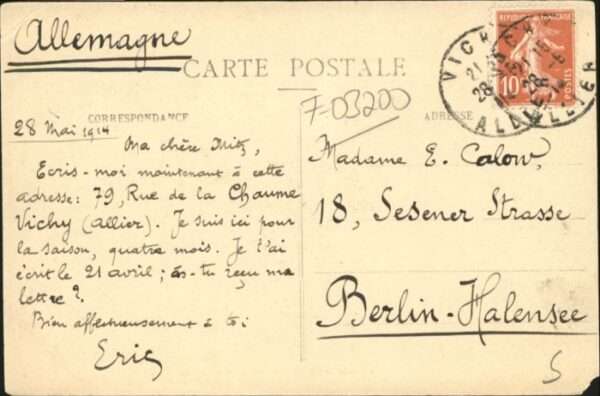 Allemagne
CARTE POSTALE
CORRESPONDANCE
ADRESSE
F-03200
28 Mai 1914
Ma chère Mitz,
Ecris-moi maintenant à cette
adresse: 79, Rue de la Chaume
Vichy (Allier). Je suis ici pour
la saison, quatre mois. Je t'ai
écrit le 21 avril; as-tu reçu ma
lettre?
Bien affectueusement à toi
Eric
Madame E. Calow,
18, Sesener Strasse
Berlin-Halensee
10
POSTES
VICHY
ALLIER